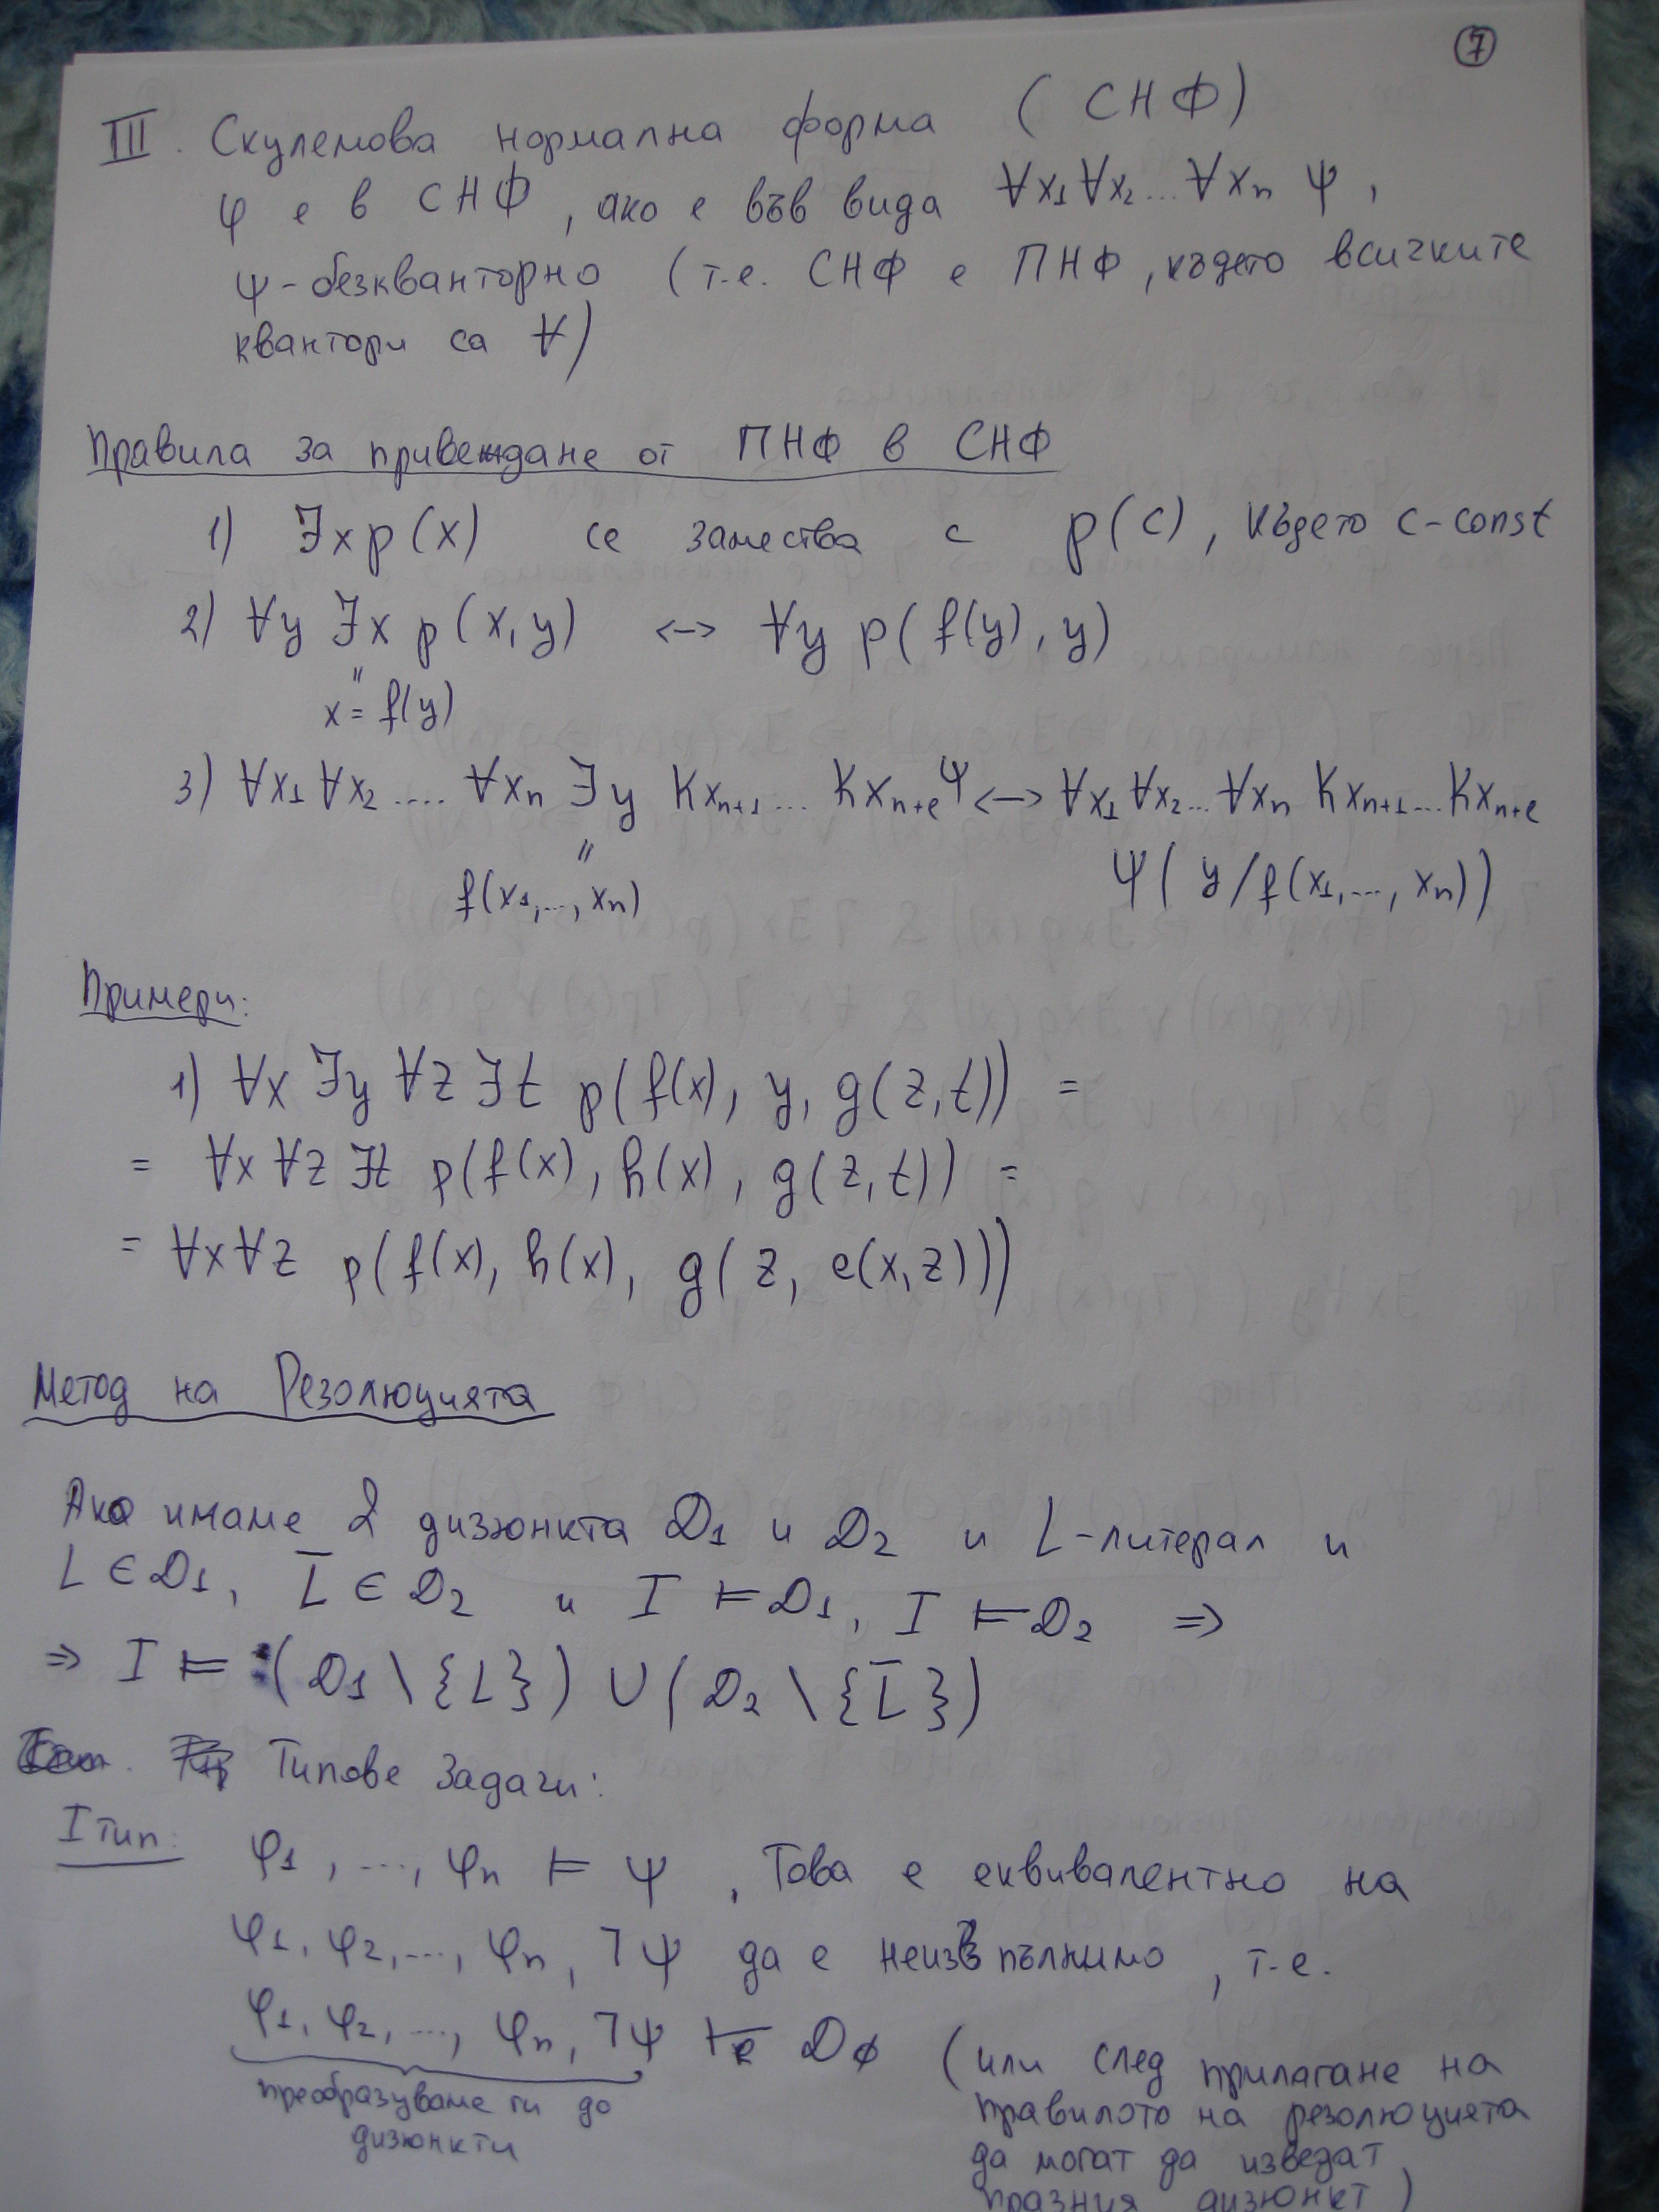 7
III. Скулемова нормална форма (СНФ)
φ е в СНФ, ако е във вида ∀x₁∀x₂...∀xₙ ψ,
ψ-безкванторно (т.е. СНФ е ПНФ, където всичките
квантори са ∀)
Правила за привеждане от ПНФ в СНФ
1) ∃x p(x) се замества с p(c), където c-const
2) ∀y ∃x p(x,y) <-> ∀y p(f(y), y)
"
x = f(y)
3) ∀x₁ ∀x₂ .... ∀xₙ ∃y Kxₙ₊₁... Kxₙ₊ₑ Ψ <-> ∀x₁ ∀x₂... ∀xₙ Kxₙ₊₁...Kxₙ₊ₑ
"
f(x₁,..., xₙ) Ψ( y/f(x₁,..., xₙ))
Примери:
1) ∀x ∃y ∀z ∃t p(f(x), y, g(z,t)) =
= ∀x ∀z ∃t p(f(x), h(x), g(z,t)) =
= ∀x∀z p(f(x), h(x), g(z, e(x,z)))
Метод на Резолюцията
Ако имаме 2 дизюнкта D₁ и D₂ и L-литерал и
L ∈ D₁, L̅ ∈ D₂ и I ⊨ D₁, I ⊨ D₂ ⇒
⇒ I ⊨ (D₁ \ {L}) ∪ (D₂ \ {L̅})
Типове задачи:
I тип: φ₁, ..., φₙ ⊨ ψ, Това е еквивалентно на
φ₁, φ₂,..., φₙ, ⅂ψ да е неизпълнимо, т.е.
φ₁, φ₂, ..., φₙ, ⅂ψ ⊢ᵣ D∅ (или след прилагане на
преобразуваме ги до правилото на резолюцията
дизюнкти да могат да изведат
празния дизюнкт)